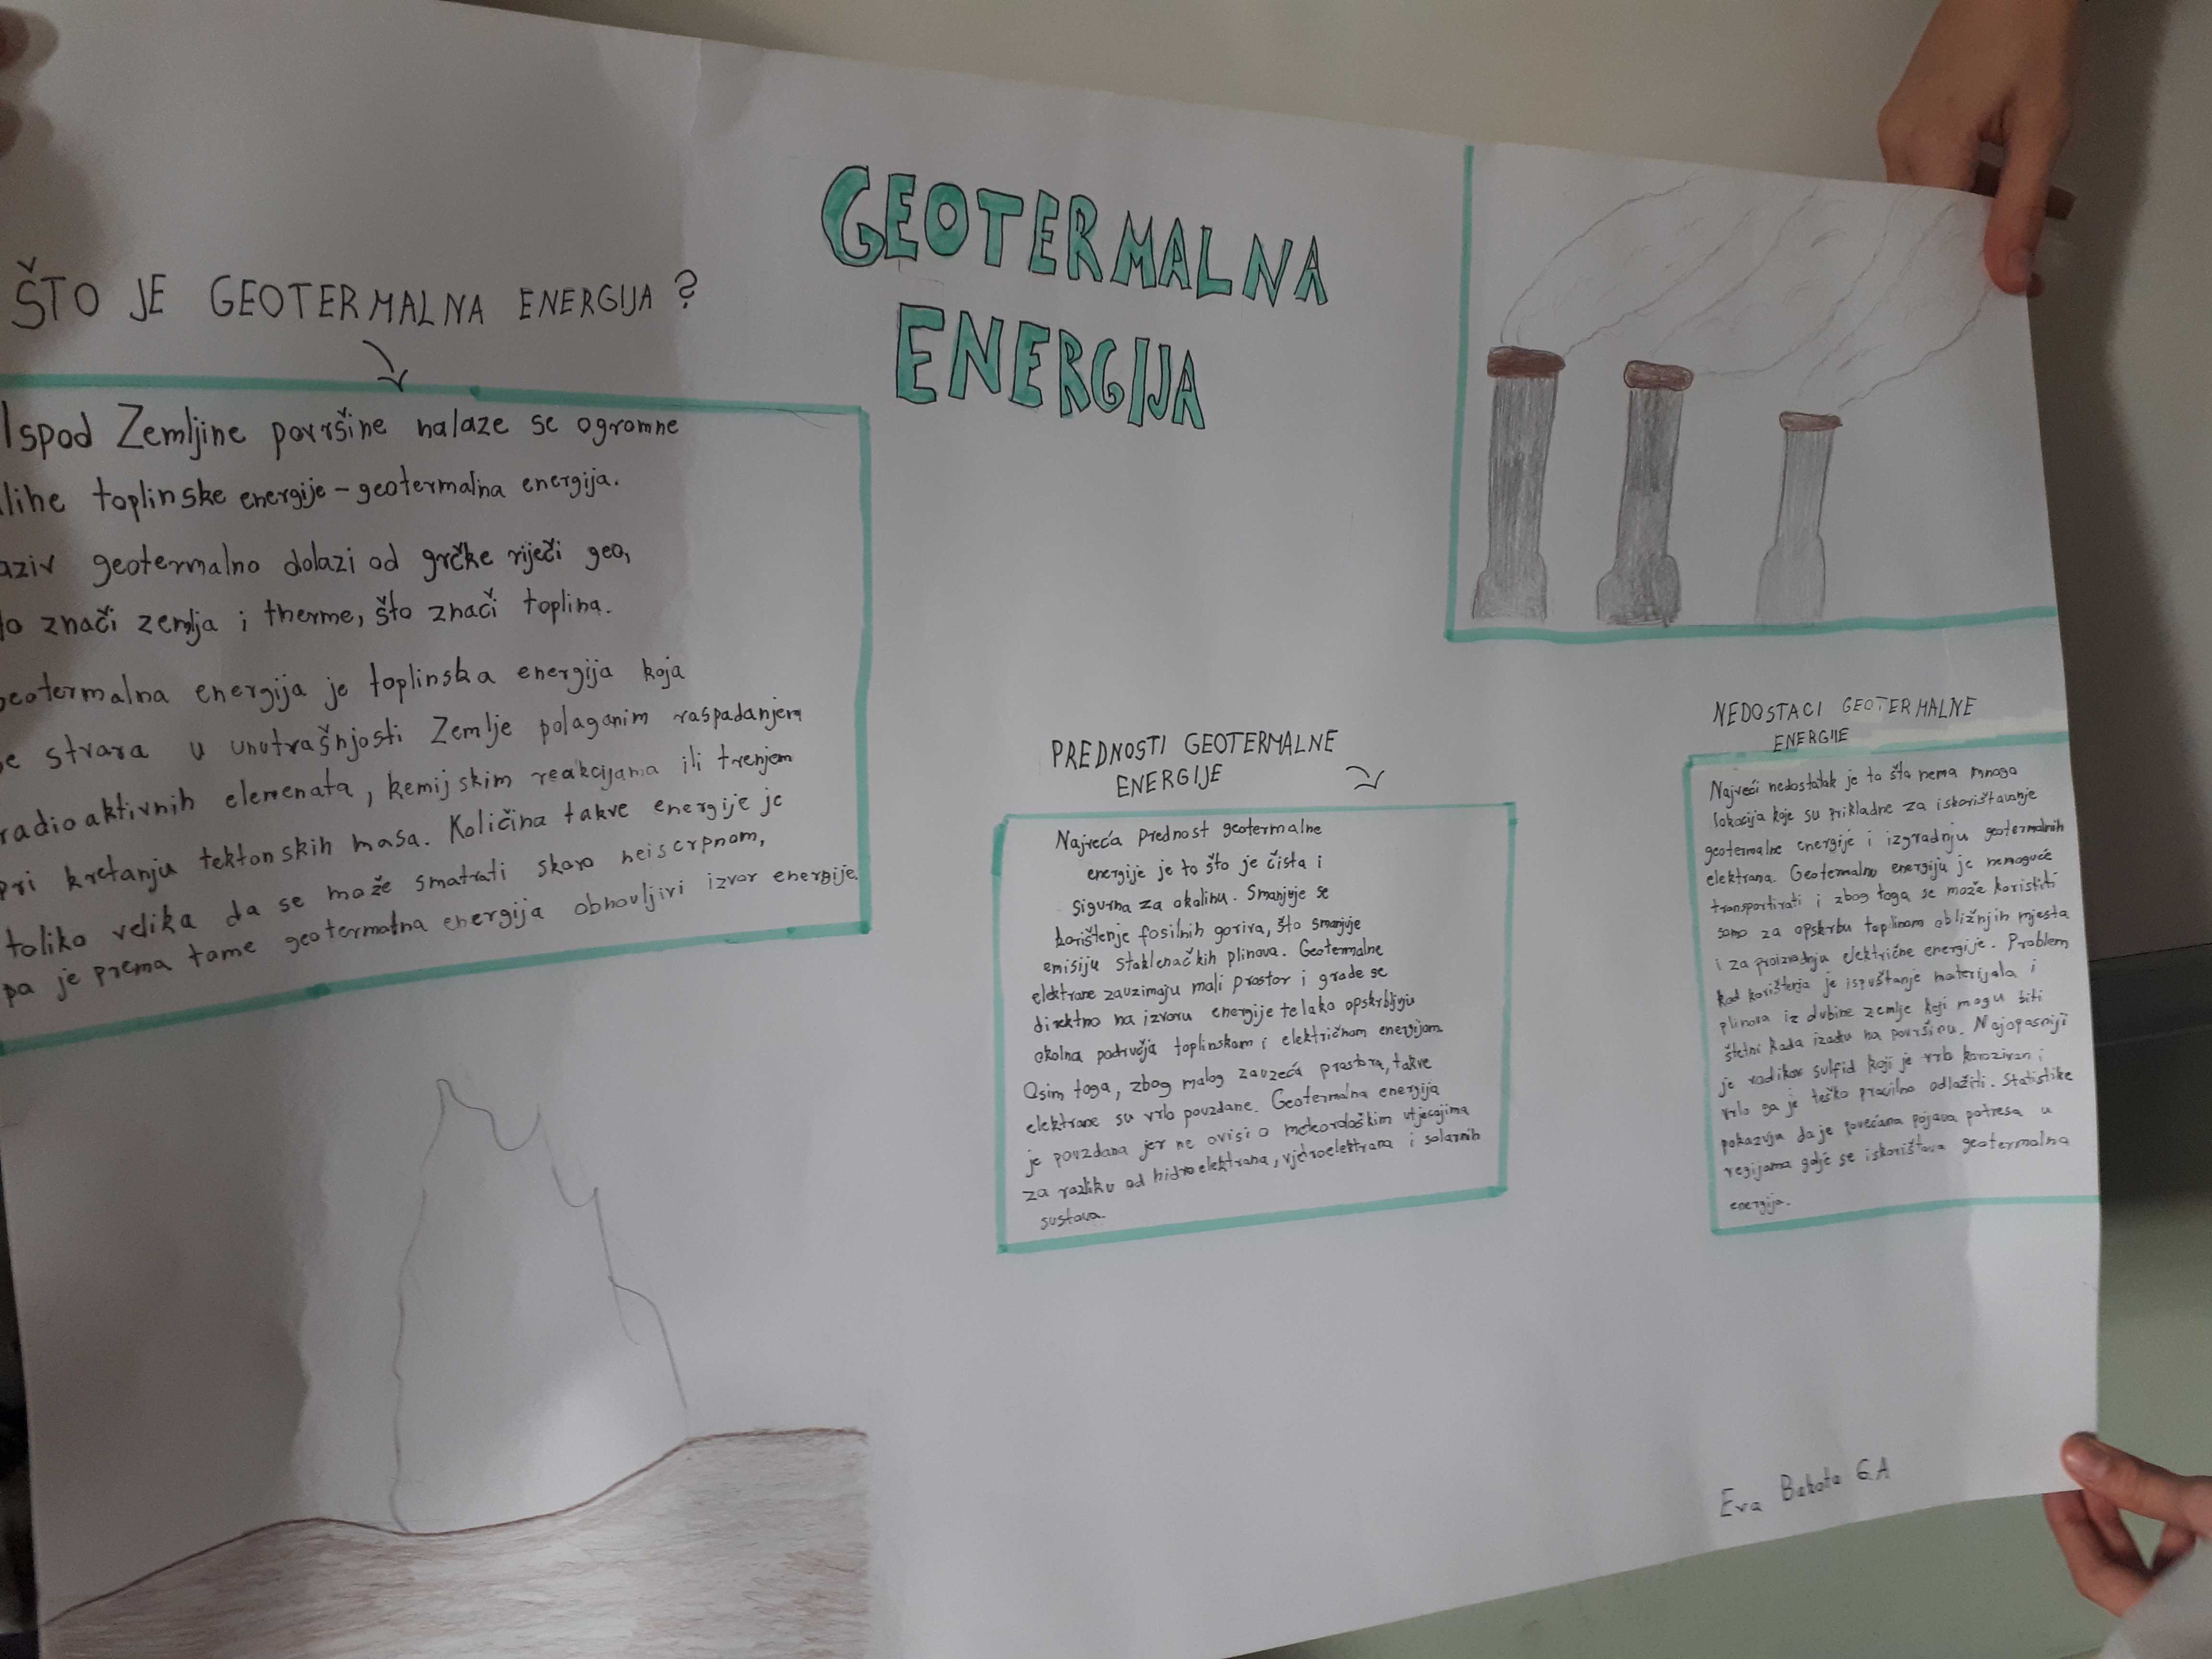 GEOTERMALNA
ENERGIJA
ŠTO JE GEOTERMALNA ENERGIJA?
Ispod Zemljine površine nalaze se ogromne
lihe toplinske energije - geotermalna energija.
aziv geotermalno dolazi od grčke riječi geo,
to znači zemlja i therme, što znači toplina.
geotermalna energija je toplinska energija koja
se stvara u unutrašnjosti Zemlje polaganim raspadanjem
radioaktivnih elemenata, kemijskim reakcijama ili trenjem
pri kretanju tektonskih masa. Količina takve energije je
toliko velika da se može smatrati skoro neiscrpnom,
pa je prema tome geotermalna energija obnovljivi izvor energije.
PREDNOSTI GEOTERMALNE
ENERGIJE
Najveća prednost geotermalne
energije je to što je čista i
sigurna za okolinu. Smanjuje se
korištenje fosilnih goriva, što smanjuje
emisiju stakleničkih plinova. Geotermalne
elektrane zauzimaju mali prostor i grade se
direktno na izvoru energije te lako opskrbljuju
okolna područja toplinskom i električnom energijom.
Osim toga, zbog malog zauzeća prostora, takve
elektrane su vrlo pouzdane. Geotermalna energija
je pouzdana jer ne ovisi o meteorološkim utjecajima
za razliku od hidroelektrana, vjetroelektrana i solarnih
sustava.
NEDOSTACI GEOTERMALNE
ENERGIJE
Najveći nedostatak je to što nema mnogo
lokacija koje su prikladne za iskorištavanje
geotermalne energije i izgradnju geotermalnih
elektrana. Geotermalnu energiju je nemoguće
transportirati i zbog toga se može koristiti
samo za opskrbu toplinom obližnjih mjesta
i za proizvodnju električne energije. Problem
kod korištenja je ispuštanje materijala i
plinova iz dubine zemlje koji mogu biti
štetni kada izađu na površinu. Najopasniji
je vodikov sulfid koji je vrlo korozivan i
vrlo ga je teško pravilno odlažiti. Statistike
pokazuju da je povećana pojava potresa u
regijama gdje se iskorištava geotermalna
energija.
Eva Bakota 6.A